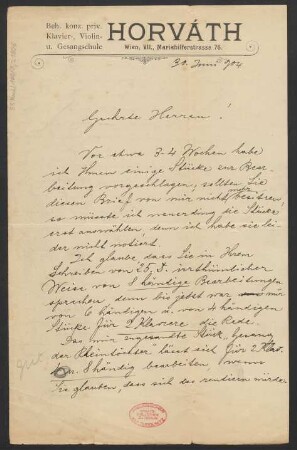 Beh. konz. priv.
Klavier-, Violin-
u. Gesangschule
HORVÁTH
Wien, VII., Mariahilferstrasse 76.
30. Juni 904
Geehrte Herren!
Vor etwa 3-4 Wochen habe
ich Ihnen einige Stücke zur Bear-
beitung vorgeschlagen, sollten Sie
diesen Brief von mir nicht mehr besitzen,
so müsste ich neuerding die Stücke
erst auswählen, denn ich habe sie lei-
der nicht notiert.
Ich glaube, dass Sie in Ihrem
Schreiben von 25. 5. irrthümlicher
Weise von 8 händige Bearbeitungen
sprachen, denn bis jetzt war nur
von 6 händigen u. von 4 händigen
Stücke für 2 Klaviere die Rede.
Das mir zugesandte Stück, Gesang
der Rheintöchter lässt sich für 2 Klav.
8 händig bearbeiten, wenn
Sie glauben, dass sich das rentieren würde